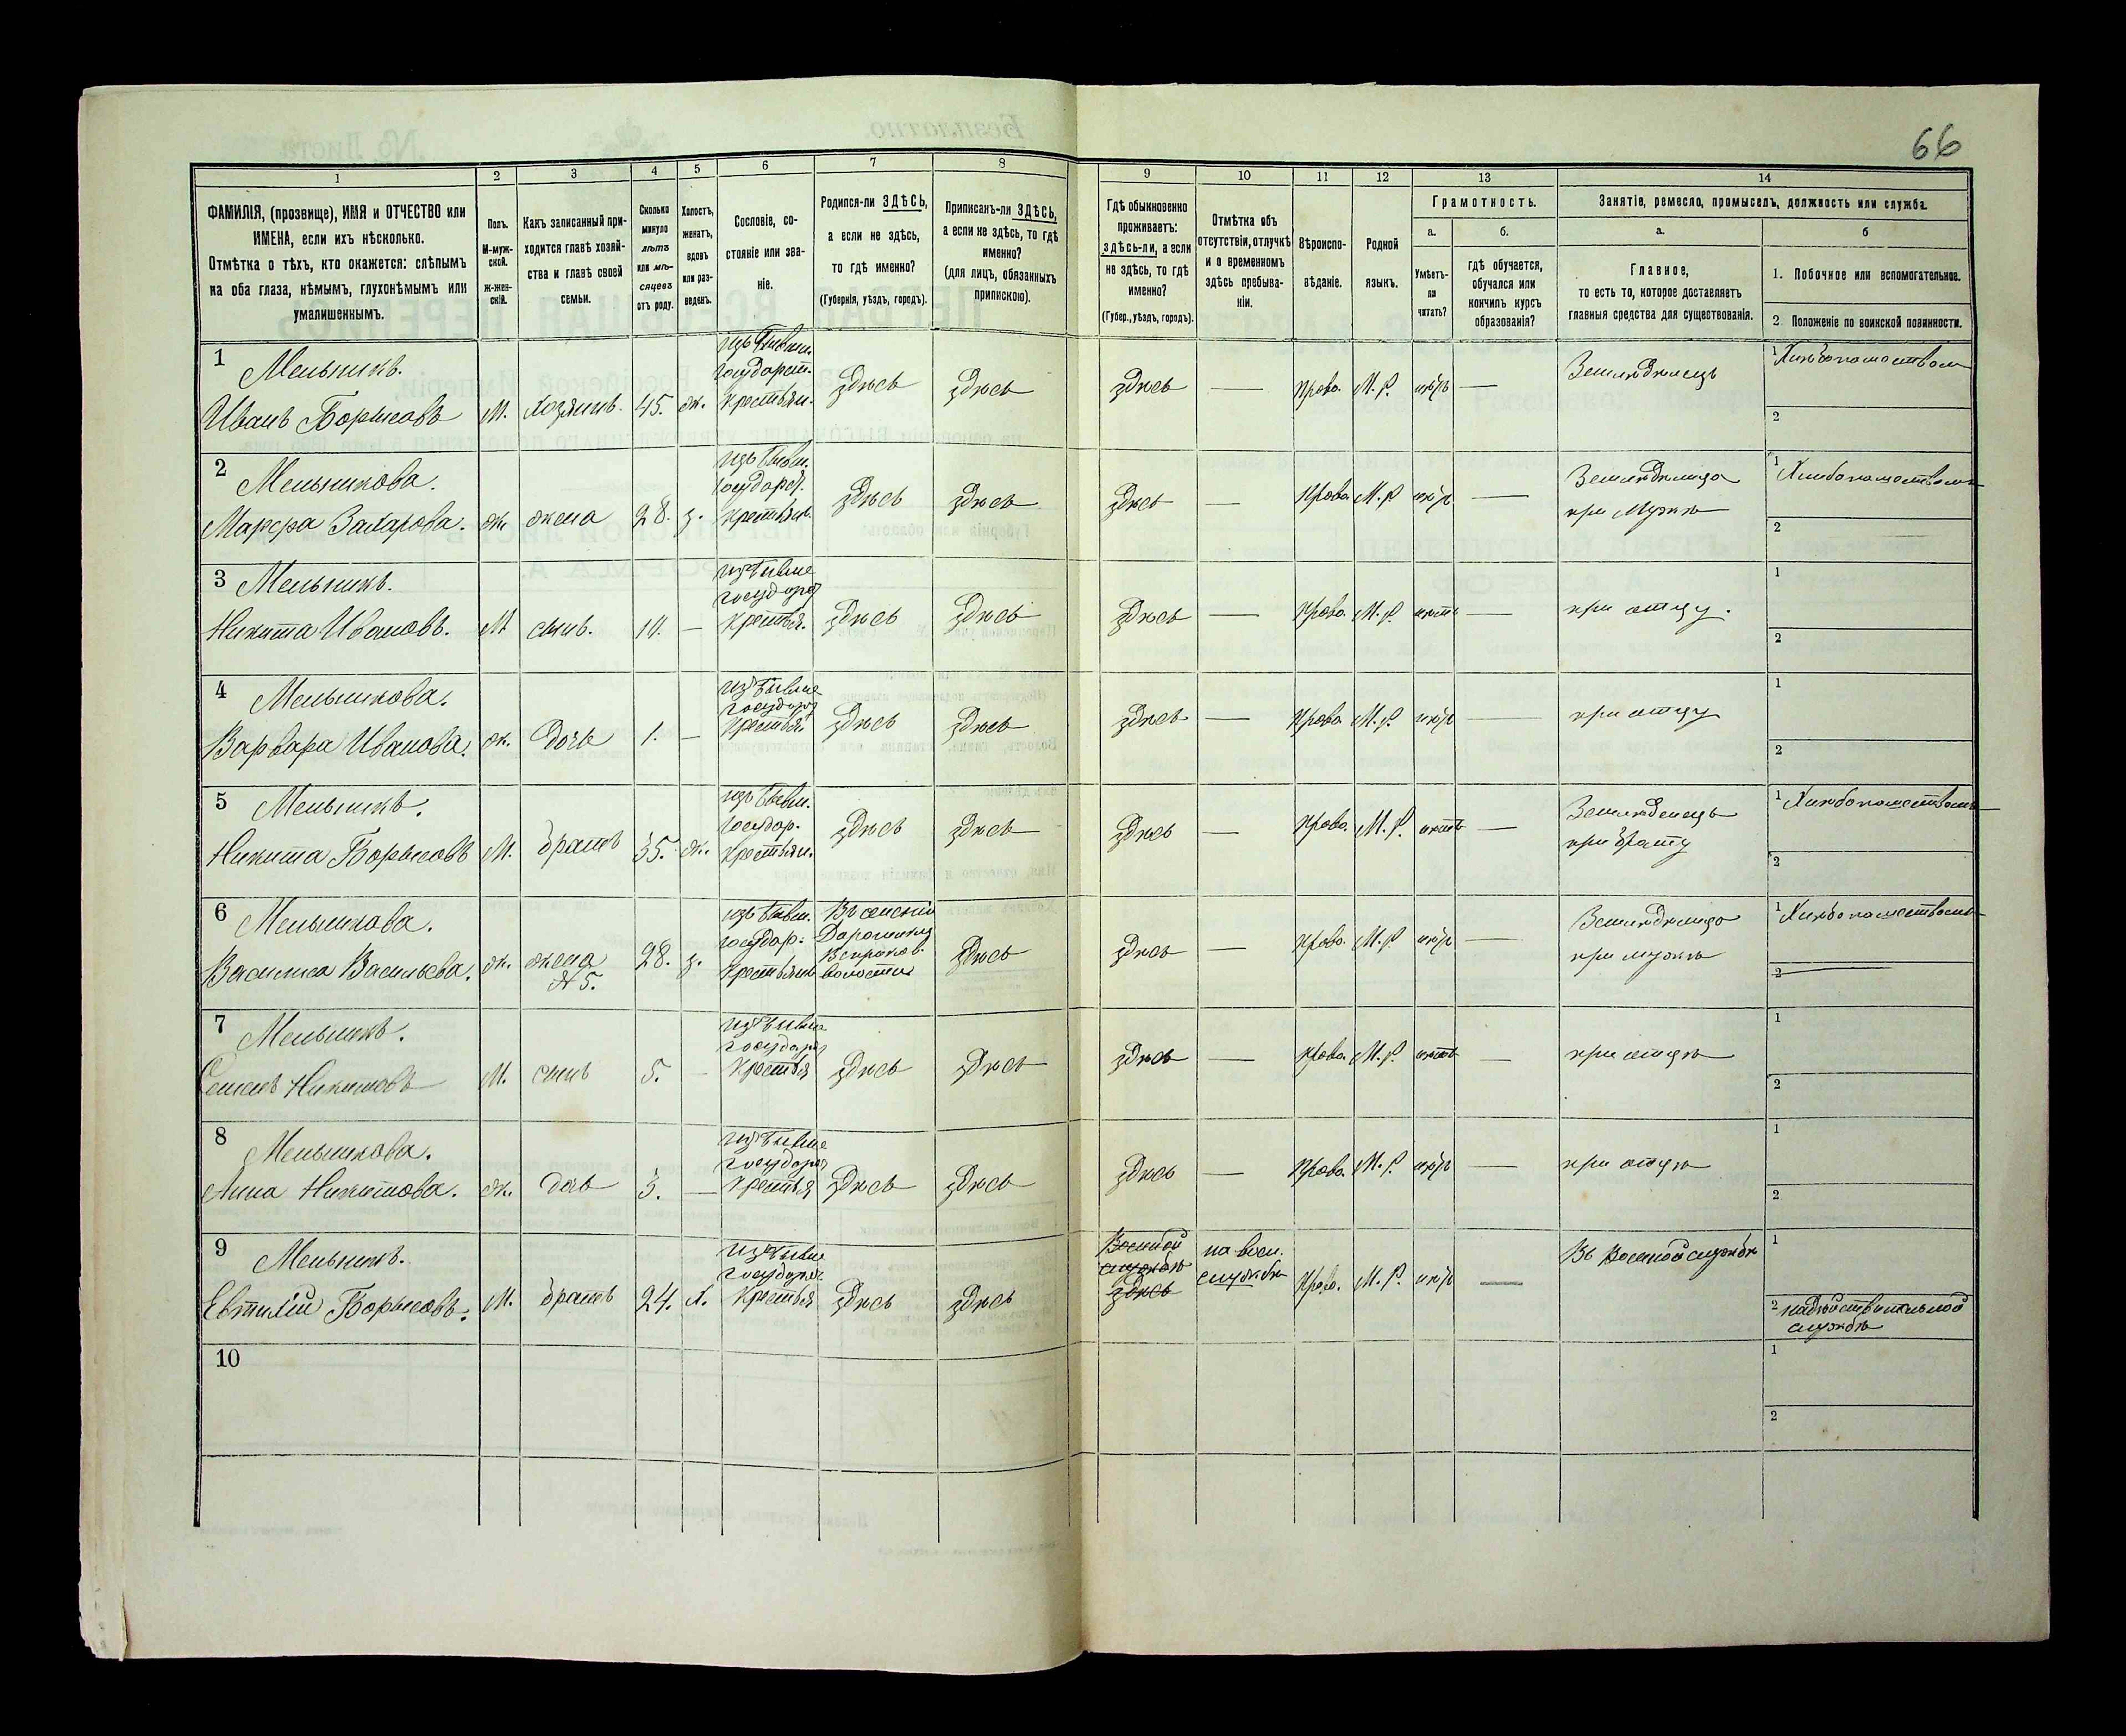 66
1
2
3
4
5
6
7
8
9
10
11
12
13
14
ФАМИЛІЯ, (прозвище), ИМЯ и ОТЧЕСТВО или
ИМЕНА, если ихъ нѣсколько.
Отмѣтка о тѣхъ, кто окажется: слѣпымъ
на оба глаза, нѣмымъ, глухонѣмымъ или
умалишеннымъ.
Полъ.
М-муж-
ской.
Ж-жен-
скій.
Какъ записанный при-
ходится главѣ хозяй-
ства и главѣ своей
семьи.
Сколько
минуло
лѣтъ
или мѣ-
сяцевъ
отъ роду.
Холостъ,
женатъ,
вдовъ
или раз-
веденъ.
Сословіе, со-
стояніе или зва-
ніе.
Родился-ли ЗДѢСЬ,
а если не здѣсь,
то гдѣ именно?
(Губернія, уѣздъ, городъ).
Приписанъ-ли ЗДѢСЬ,
а если не здѣсь, то гдѣ
именно?
(для лицъ, обязанныхъ
припискою).
Гдѣ обыкновенно
проживаетъ:
здѣсь-ли, а если
не здѣсь, то гдѣ
именно?
(Губер., уѣздъ, городъ).
Отмѣтка объ
отсутствіи, отлучкѣ
и о временномъ
здѣсь пребыва-
ніи.
Вѣроиспо-
вѣданіе.
Родной
языкъ.
Грамотность.
а.
Умѣетъ-
ли
читать?
б.
гдѣ обучается,
обучался или
кончилъ курсъ
образованія?
Занятіе, ремесло, промыселъ, должность или служба.
а.
Главное,
то есть то, которое доставляетъ
главныя средства для существованія.
б
1. Побочное или вспомогательное.
2. Положеніе по воинской повинности.
1 Мельникъ.
Иванъ Борисовъ
М. хозяинъ. 45. ж.
изъ бывш.
государст.
крестьян.
здѣсь здѣсь здѣсь — Право. М. Р. —
Земледѣлецъ
1 Хлѣбопашествомъ
2
2 Мельникова.
Марѳра Захарова.
ж. жена 28. з.
изъ бывш.
государ.
крестьян.
здѣсь здѣсь здѣсь — Право. М. Р. —
Земледѣлица
при мужѣ
1 Хлѣбопашествомъ
2
3 Мельникъ.
Никита Ивановъ.
М сынъ. 10. —
изъ бывше
государ
крестья.
здѣсь здѣсь здѣсь — Право. М. Р. нѣтъ —
при отцу.
1
2
4 Мельникова.
Варвара Иванова.
ж. дочь 1. —
изъ бывше
государ
крестья.
здѣсь здѣсь здѣсь — Право. М. Р. —
при отцу
1
2
5 Мельникъ.
Никита Борисовъ
М. братъ 35. ж.
изъ бывш.
государ.
крестьян.
здѣсь здѣсь здѣсь — Право. М. Р. нѣтъ —
Земледелецъ
при брату
1 Хлѣбопашествомъ
2
6 Мельникова.
Василиса Васильева.
ж. жена
№ 5.
28. з.
изъ бывш.
государ.
крестьян
Въ селеніи
волости
здѣсь здѣсь — Право. М. Р. —
Земледѣлица
при мужѣ
1 Хлѣбопашествомъ
2
7 Мельникъ.
Семенъ Никитовъ
М. сынъ 5. —
изъ бывше
государ
крестья
здѣсь здѣсь здѣсь — Право. М. Р. нѣтъ —
при отцѣ
1
2
8 Мельникова.
Анна Никитова.
ж. дочь 3. —
изъ бывше
государ
крестья
здѣсь здѣсь здѣсь — Право. М. Р. —
при отцѣ
1
2
9 Мельникъ.
Евтихій Борисовъ.
М. братъ 24. х.
изъ бывше
государ
крестья
здѣсь здѣсь
Военной
службѣ
здѣсь
на воен.
службѣ
Право. М. Р. —
Въ Военной службѣ
1
2 на дѣйствительной
службѣ
10
1
2